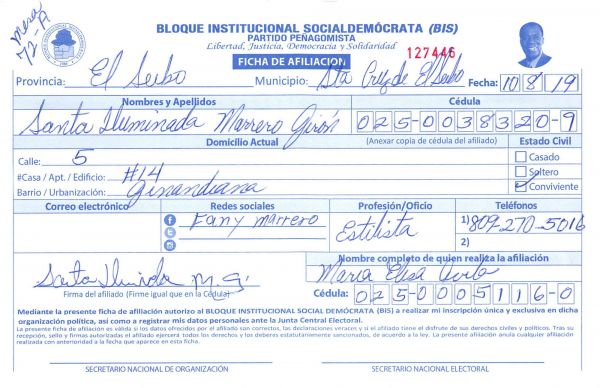 Mesa
72-A
BLOQUE INSTITUCIONAL SOCIALDEMÓCRATA (BIS)
PARTIDO PEÑAGOMISTA
Libertad, Justicia, Democracia y Solidaridad
FICHA DE AFILIACION
127446
Provincia: El Seibo Municipio: Sta Cruz de El Seibo Fecha: 10 8 19
Nombres y Apellidos Cédula
Santa Iluminada Marrero Girón 025-0038320-9
Domicilio Actual (Anexar copia de cédula del afiliado) Estado Civil
Calle: 5 Casado
#Casa / Apt. / Edificio: #14 Soltero
Barrio / Urbanización: Ginandiana Conviviente
Correo electrónico Redes sociales Profesión/Oficio Teléfonos
Fany Marrero Estilista 1) 809-270-5016
2)
Nombre completo de quien realiza la afiliación
Santa Iluminada M.G. Maria Elisa Avila
Firma del afiliado (Firme igual que en la Cédula) Cédula: 025-0005116-0
Mediante la presente ficha de afiliación autorizo al BLOQUE INSTITUCIONAL SOCIAL DEMÓCRATA (BIS) a realizar mi inscripción única y exclusiva en dicha
organización política, así como a registrar mis datos personales ante la Junta Central Electoral.
La presente ficha de afiliación es válida si los datos ofrecidos por el afiliado son correctos, las declaraciones veraces y si el afiliado tiene el disfrute de sus derechos civiles y políticos. Tras su
recepción, sello y firmas autorizadas el afiliado ejercerá todos los derechos y los deberes estatutariamente consagrados, sin necesidad de otro requerimiento. La presente afiliación anula cualquier afiliación
realizada con anterioridad a la fecha de que aparece en esta ficha.
SECRETARIO NACIONAL DE ORGANIZACIÓN SECRETARIO NACIONAL ELECTORAL